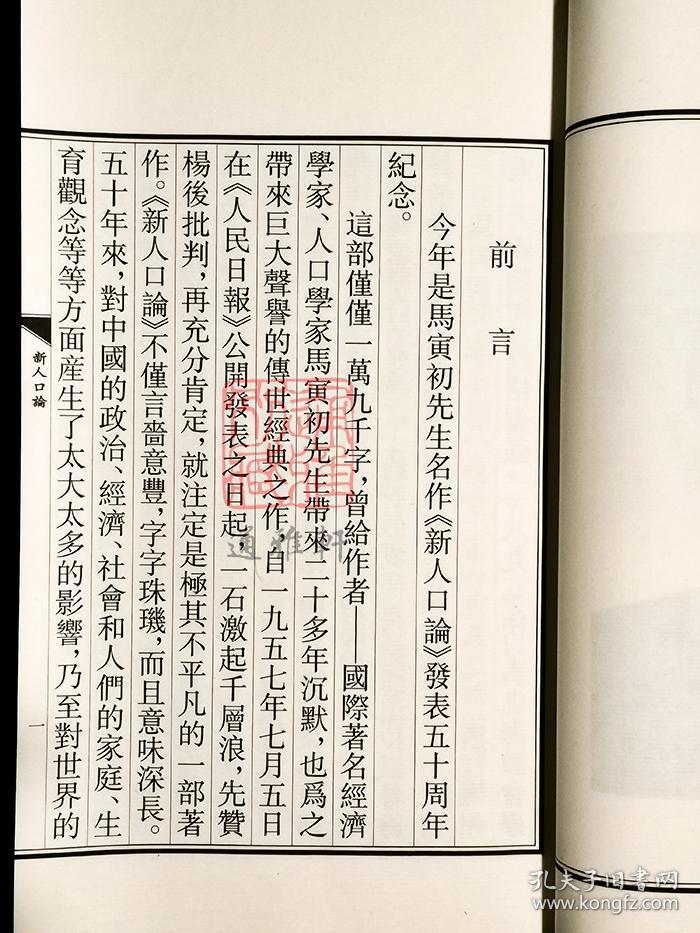 前言
今年是馬寅初先生名作《新人口論》發表五十周年
紀念。
這部僅僅一萬九千字，曾給作者——國際著名經濟
學家、人口學家馬寅初先生帶來二十多年沉默，也爲之
帶來巨大聲譽的傳世經典之作，自一九五七年七月五日
在《人民日報》公開發表之日起，一石激起千層浪，先贊
楊後批判，再充分肯定，就注定是極其不平凡的一部著
作。《新人口論》不僅言嗇意豐，字字珠璣，而且意味深長。
五十年來，對中國的政治、經濟、社會和人們的家庭、生
育觀念等等方面産生了太大太多的影響，乃至對世界的
新人口論
一
通雅軒
孔夫子旧书网
www.kongfz.com